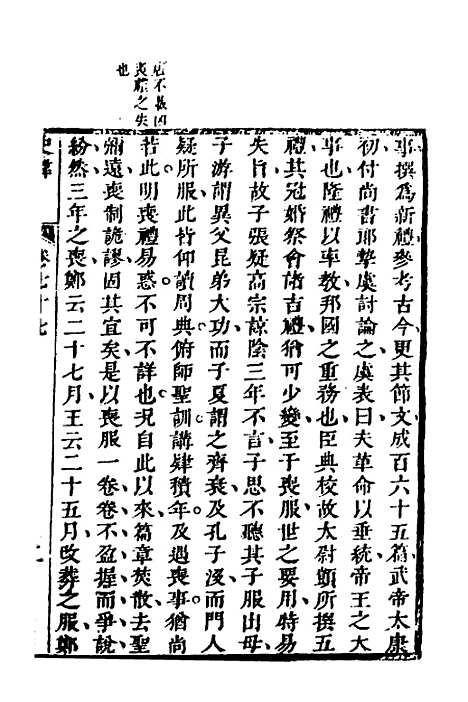 居不議凶
喪禮之失
也
事撰為新禮參考古今更其節文成百六十五篇武帝太康
初付尚書郎摯虞討論之虞表曰夫革命以垂統帝王之大
事也隆禮以率教邦國之重務也臣典校故太尉顗所撰五
禮其冠婚祭會諸吉禮猶可少變至于喪服世之要用特易
失旨故子張疑高宗諒陰三年不言子思不聽其子服出母
子游謂異父昆弟大功而子夏謂之齊衰及孔子沒而門人
疑所服此皆仰讀周典俯師聖訓講肄積年及遇喪事猶尚
若此明喪禮易惑不可不詳也況自此以來篇章焚散去聖
彌遠喪制詭謬固其宜矣是以喪服一卷卷不盈握而爭說
紛然三年之喪鄭云二十七月王云二十五月改葬之服鄭
史緯
卷七十七